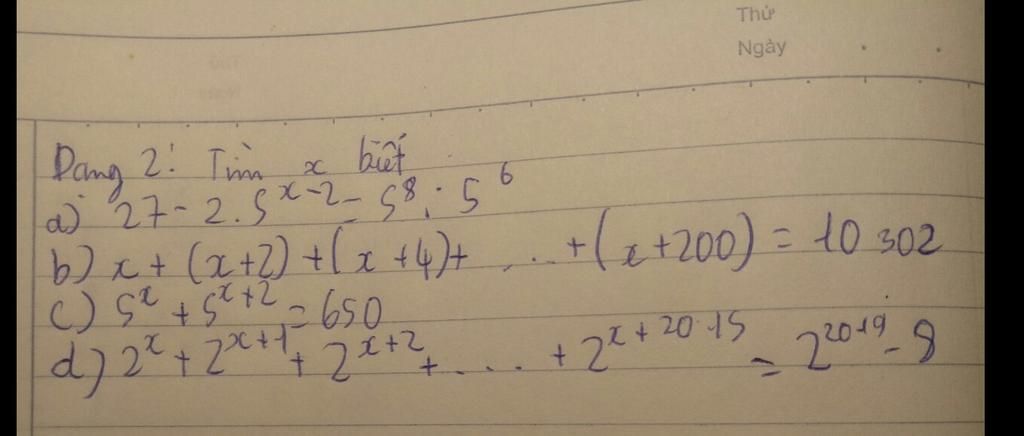 Thứ
Ngày
Dạng 2: Tìm x biết
a) 27 - 2.5^{x-2} = 5^8 : 5^6
b) x + (x+2) + (x+4) + .... + (x+200) = 10 302
c) 5^x + 5^{x+2} = 650
d) 2^x + 2^{x+1} + 2^{x+2} + .... + 2^{x+2015} = 2^{2019} - 8